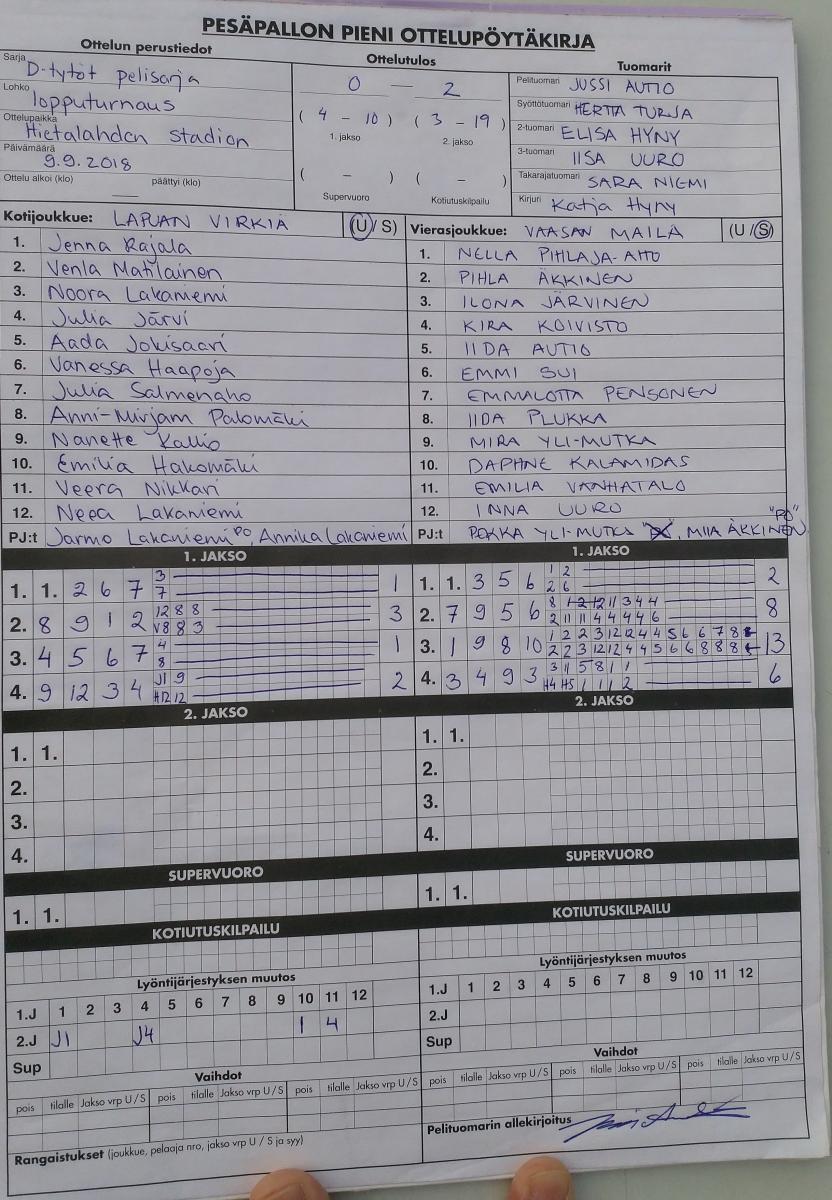 PESÄPALLON PIENI OTTELUPÖYTÄKIRJA
Ottelun perustiedot
Sarja D-tytöt pelisarja
Lohko lopputurnaus
Ottelupaikka Hietalahden Stadion
Päivämäärä 9.9.2018
Ottelu alkoi (klo) — päättyi (klo)
Ottelutulos
0 — 2
( 4 - 10 ) ( 3 - 19 )
1. jakso 2. jakso
( - ) ( - )
Supervuoro Kotiutuskilpailu
Tuomarit
Pelituomari JUSSI AUTIO
Syöttötuomari HERTTA TURJA
2-tuomari ELISA HYNY
3-tuomari IISA UURO
Takarajatuomari SARA NIEMI
Kirjuri Katja Hyny
Kotijoukkue: LAPUAN VIRKIÄ (U / S)
1. Jenna Rajala
2. Venla Matilainen
3. Noora Lakaniemi
4. Julia Järvi
5. Aada Jokisaari
6. Vanessa Haapoja
7. Julia Salmenaho
8. Anni-Mirjam Palomäki
9. Nanette Kallio
10. Emilia Hakomäki
11. Veera Nikkari
12. Neea Lakaniemi
PJ:t Jarmo Lakaniemi PO, Annika Lakaniemi
Vierasjoukkue: VAASAN MAILA (U / S)
1. NELLA PIHLAJA-AHO
2. PIHLA ÄKKINEN
3. ILONA JÄRVINEN
4. KIRA KOIVISTO
5. IIDA AUTIO
6. EMMI SUI
7. EMMALOTTA PENSONEN
8. IIDA PLUKKA
9. MIRA YLI-MUTKA
10. DAPHNE KALAMIDAS
11. EMILIA VANHATALO
12. INNA UURO
PJ:t PEKKA YLI-MUTKA, MIIA ÄKKINEN "PO"
1. JAKSO
1. 1. 2 6 7 3 1
7
2. 8 9 1 2 12 8 8 3
V8 8 3
3. 4 5 6 7 4 1
8
4. 9 12 3 4 J1 9 2
H12 12
1. JAKSO
1. 1. 3 5 6 1 2 2
2 6
2. 7 9 5 6 8 1 2 12 11 3 4 4 8
2 11 11 4 4 4 4 6
3. 1 9 8 10 1 2 2 3 12 12 4 4 5 6 6 7 8 13
2 2 3 12 12 4 4 5 6 6 8 8 8
4. 3 4 9 3 3 11 5 8 1 1 6
H4 H5 1 1 1 2
2. JAKSO
1. 1.
2.
3.
4.
2. JAKSO
1. 1.
2.
3.
4.
SUPERVUORO
1. 1.
SUPERVUORO
1. 1.
KOTIUTUSKILPAILU
KOTIUTUSKILPAILU
Lyöntijärjestyksen muutos
1.J 1 2 3 4 5 6 7 8 9 10 11 12
2.J J1 J4 1 4
Sup
Lyöntijärjestyksen muutos
1.J 1 2 3 4 5 6 7 8 9 10 11 12
2.J
Sup
Vaihdot
pois tilalle Jakso vrp U / S pois tilalle Jakso vrp U / S pois tilalle Jakso vrp U / S
Vaihdot
pois tilalle Jakso vrp U / S pois tilalle Jakso vrp U / S pois tilalle Jakso vrp U / S
Rangaistukset (joukkue, pelaaja nro, jakso vrp U / S ja syy)
Pelituomarin allekirjoitus